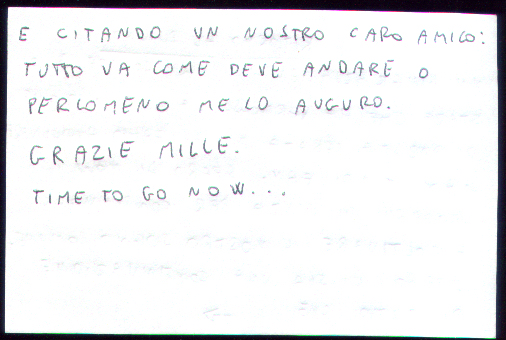 E CITANDO UN NOSTRO CARO AMICO:
TUTTO VA COME DEVE ANDARE O
PERLOMENO ME LO AUGURO.
GRAZIE MILLE.
TIME TO GO NOW...